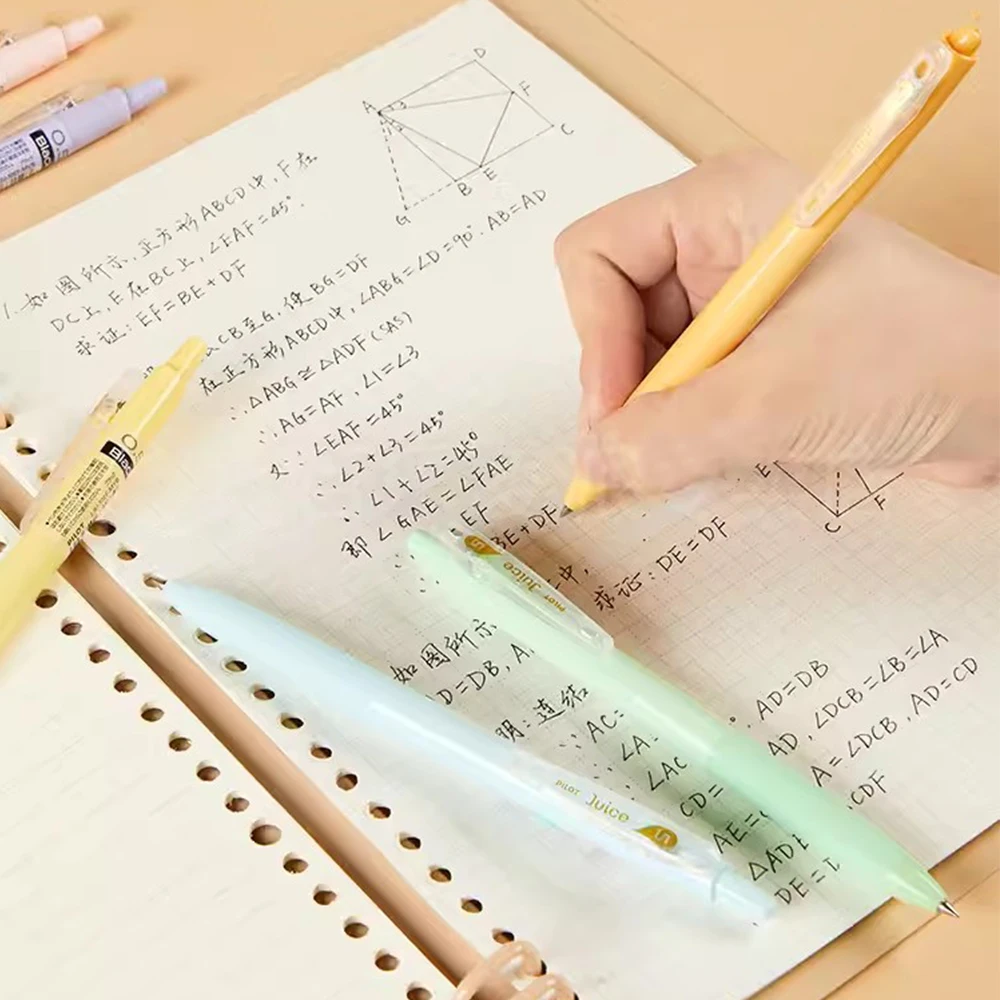 1. 如图所示,正方形ABCD中,F在
DC上,E在BC上,∠EAF=45°.
求证:EF=BE+DF
CB至G,使BG=DF
在正方形ABCD中,∠ABG=∠D=90°. AB=AD
∴△ABG≅△ADF(SAS)
∴AG=AF,∠1=∠3
又∵∠EAF=45°
∴∠2+∠3=45°
∴∠1+∠2=45°
即∠GAE=∠FAE
EF
BE+DF
中,
求证:DE=DF
如图所示
D=DB, A
明:连结
∵AC=
∴∠A
∠AC
CD=
AE=
△ADE
DE=
AD=DB
AD, ∠DCB=∠B=∠A
A=∠DCB, AD=CD
CDF
A
D
F
C
E
B
G
3
E
C
F
PILOT Juice 5
PILOT Juice 5
Black
PILOT
0.5
Black